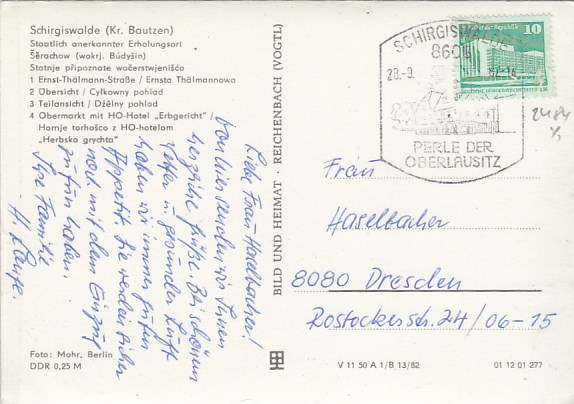 Schirgiswalde (Kr. Bautzen)
Staatlich anerkannter Erholungsort
Šěrachow (wokrj. Budyšin)
Statnje připoznate wočerstwjenišćo
1 Ernst-Thälmann-Straße / Ernsta Thälmannowa
2 Übersicht / Cyłkowny pohlad
3 Teilansicht / Dźělny pohlad
4 Obermarkt mit HO-Hotel „Erbgericht" /
Hornje torhošćo z HO-hotelom
„Herbska grychta"
Liebe Frau Haselbacher!
Von hier senden wir Ihnen
herzliche Grüße. Bei schönem
Wetter u. gesunder Luft
haben wir immer guten
Appetit. Sie werden sicher
noch mit dem Einzug
zu tun haben.
Ihre Familie
H.
Foto: Mohr, Berlin
DDR 0,25 M
BILD UND HEIMAT · REICHENBACH (VOGTL)
SCHIRGISWALDE
8605
28.-9.
PERLE DER
OBERLAUSITZ
10
2484
Frau
Haselbacher
8080 Dresden
Rostockerstr. 24/06-15
V 11 50 A 1/B 13/82
01 12 01 277